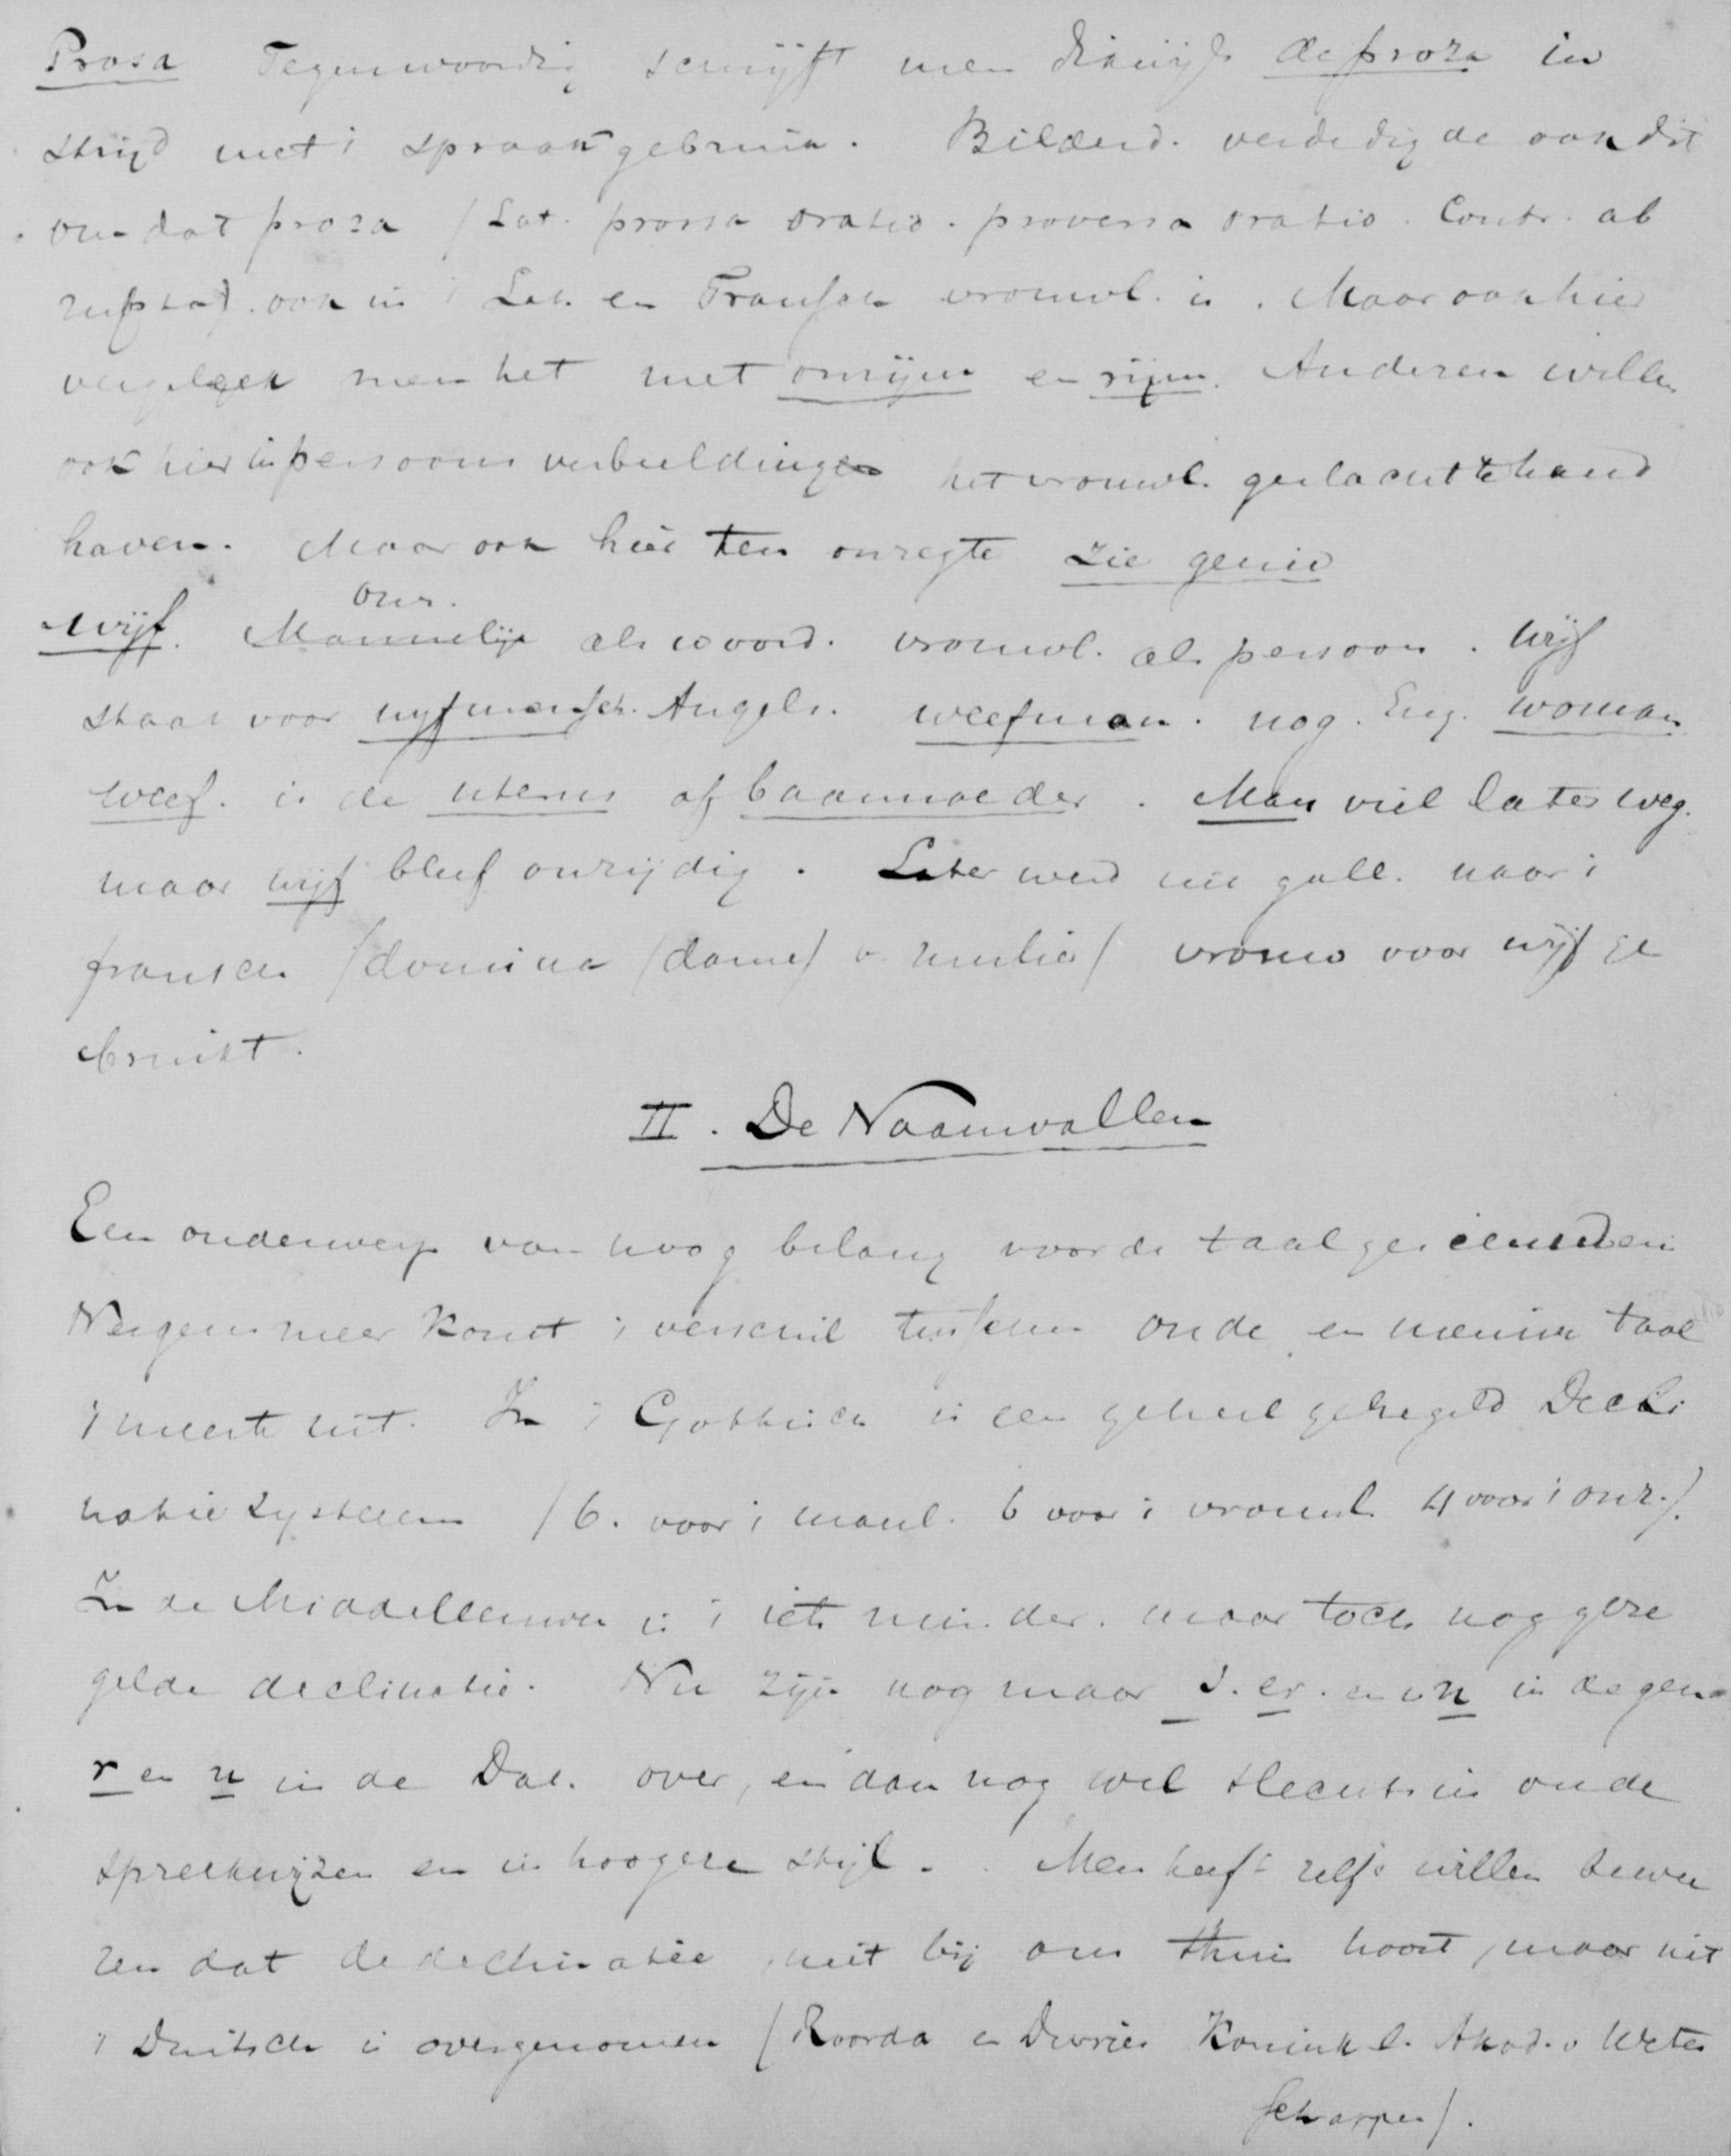 Prosa Tegenwoordig schrijft men dikwijls de proza in
strijd met 't spraakgebruik. Bilderd. verdedigde ook dit
omdat proza (Lat. prorsa oratio. proversa oratio. Contr. ab
ook in 't Lat. en Fransch vrouwl. is. Maar ook hier
vergeleek men het met onrijm en rijm. Anderen willen
ook hier in persoonsverbeeldingen het vrouwl. geslacht te hand
haven. Maar ook hier ten onregte zie genie
onz.
wijf. Mannelijk als woord. vrouwl. als persoon. Wijf
staat voor wijfmensch. Angels. weefman. nog. Eng. woman
weef. is de uterus of baarmoeder. Man viel later weg.
maar wijf bleef onzijdig. Later werd uit gall. naar 't
fransch (domina (dame) v. mulier) vrouw voor wijf ge
bruikt.
II. De Naamvallen
Een onderwerp van hoog belang voor de taalgeleerden
Nergens meer komt 't verschil tusschen oude en nieuwe taal
't meeste uit. In 't Gotthisch is een geheel geregeld Decli
natie systeem (6. voor 't manl. 6 voor 't vrouwl. 4 voor 't onz.).
In de Middeleeuwen is 't iets minder. maar toch nog gere
gelde declinatie. Nu zijn nog maar s. er. en n in de gen.
r en n in de Dat. over, en dan nog wel slechts in oude
spreekwijzen en in hoogere stijl. Men heeft zelfs willen bewee
ren dat de declinatie niet bij ons thuis hoort, maar uit
't Duitsch is overgenomen (Roorda en Devries Koninkl. Akad. v Weten
schappen).